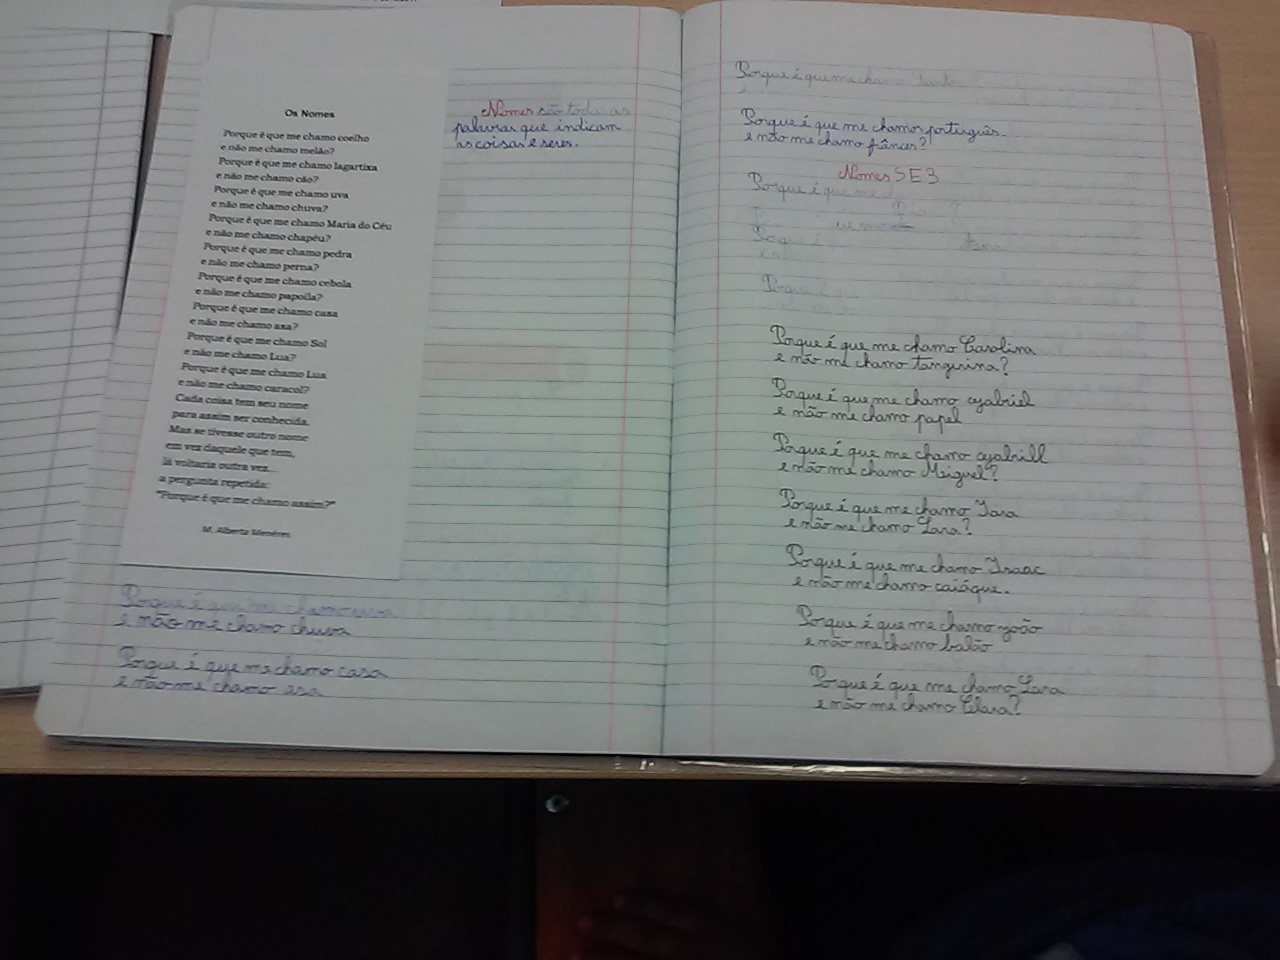 Os Nomes
Porque é que me chamo coelho
e não me chamo melão?
Porque é que me chamo lagartixa
e não me chamo cão?
Porque é que me chamo uva
e não me chamo chuva?
Porque é que me chamo Maria do Céu
e não me chamo chapéu?
Porque é que me chamo pedra
e não me chamo perna?
Porque é que me chamo cebola
e não me chamo papoila?
Porque é que me chamo casa
e não me chamo asa?
Porque é que me chamo Sol
e não me chamo Lua?
Porque é que me chamo Lua
e não me chamo caracol?
Cada coisa tem seu nome
para assim ser conhecida.
Mas se tivesse outro nome
em vez daquele que tem,
lá voltaria outra vez
a pergunta repetida:
"Porque é que me chamo assim?"
M. Alberta Menéres
Porque é que me chamo uva
e não me chamo chuva
Porque é que me chamo casa
e não me chamo asa
Nomes são todas as
palavras que indicam
as coisas e seres.
Porque é que me chamo
Porque é que me chamos português
e não me chamo frânces?
Nomes SE3
Porque é que me
Porque é que me chamo Carolina
e não me chamo tangerina?
Porque é que me chamo Gabriel
e não me chamo papel
Porque é que me chamo Gabrill
e não me chamo Meiguel?
Porque é que me chamo Iara
e não me chamo Lara?
Porque é que me chamo Isaac
e não me chamo caiáque.
Porque é que me chamo João
e não me chamo balão
Porque é que me chamo Lara
e não me chamo Clara?